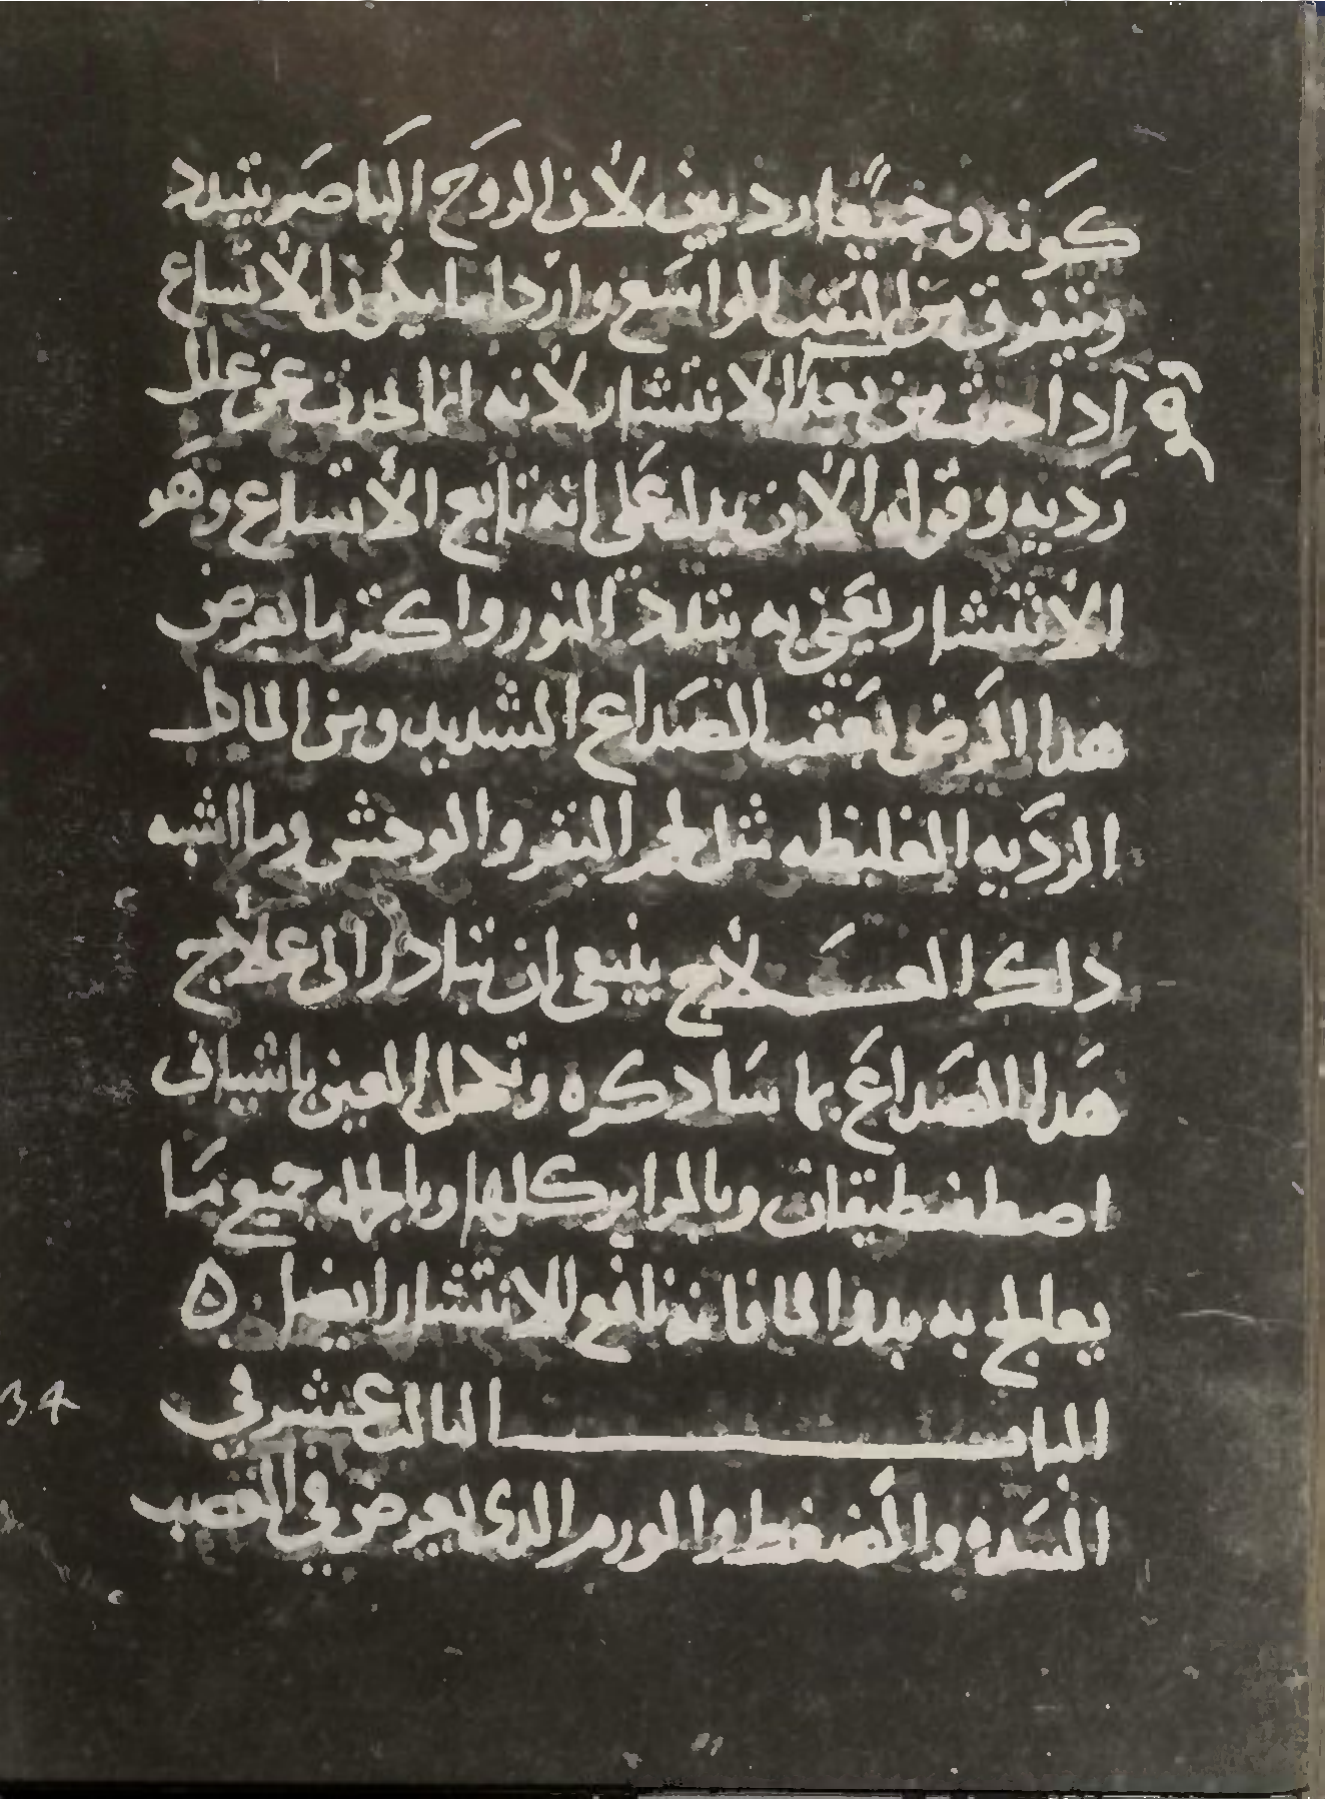 كونه وجميعا رديين لان الروح الباصر يتبدد
ويتفرق من الثقب الواسع واردا ما يكون الاتساع
اذا حدث من بعد الانتشار لانه انما يحدث عن علل
رديه وقوله الان يدل على انه تابع الاتساع وهو
الانتشار يعنى به تبدد النور واكثر ما يعرض
هدا المرض بعقب الصداع الشديد ومن الماكل
الرديه الغليظه مثل لحم البقر والوحش وما اشبه
ذلك العــــلاج ينبغى ان تبادر الى علاج
هدا الصداع بما سادكره وتكحل العين باشياف
اصطفطيقان وبالمراير كلها وبالجمله جميع ما
يعالج به بدوا الما فانه نافع للانتشار ايضا ه
البابــــــــــ الثالث عشر في
السده والضغط والورم الدى يعرض في العصب